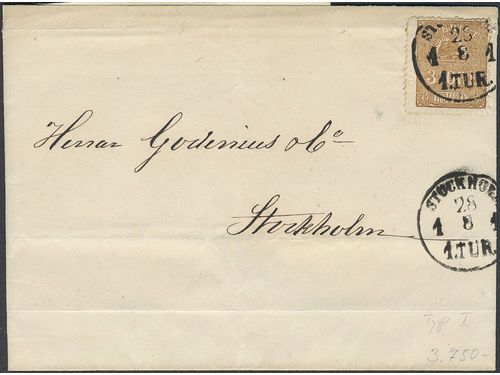 28
1 8 1
1.TUR.
3
Herrar Godenius & Co
Stockholm
STOCKHOLM
28
1 8 1
1.TUR.
Typ I
3.750-